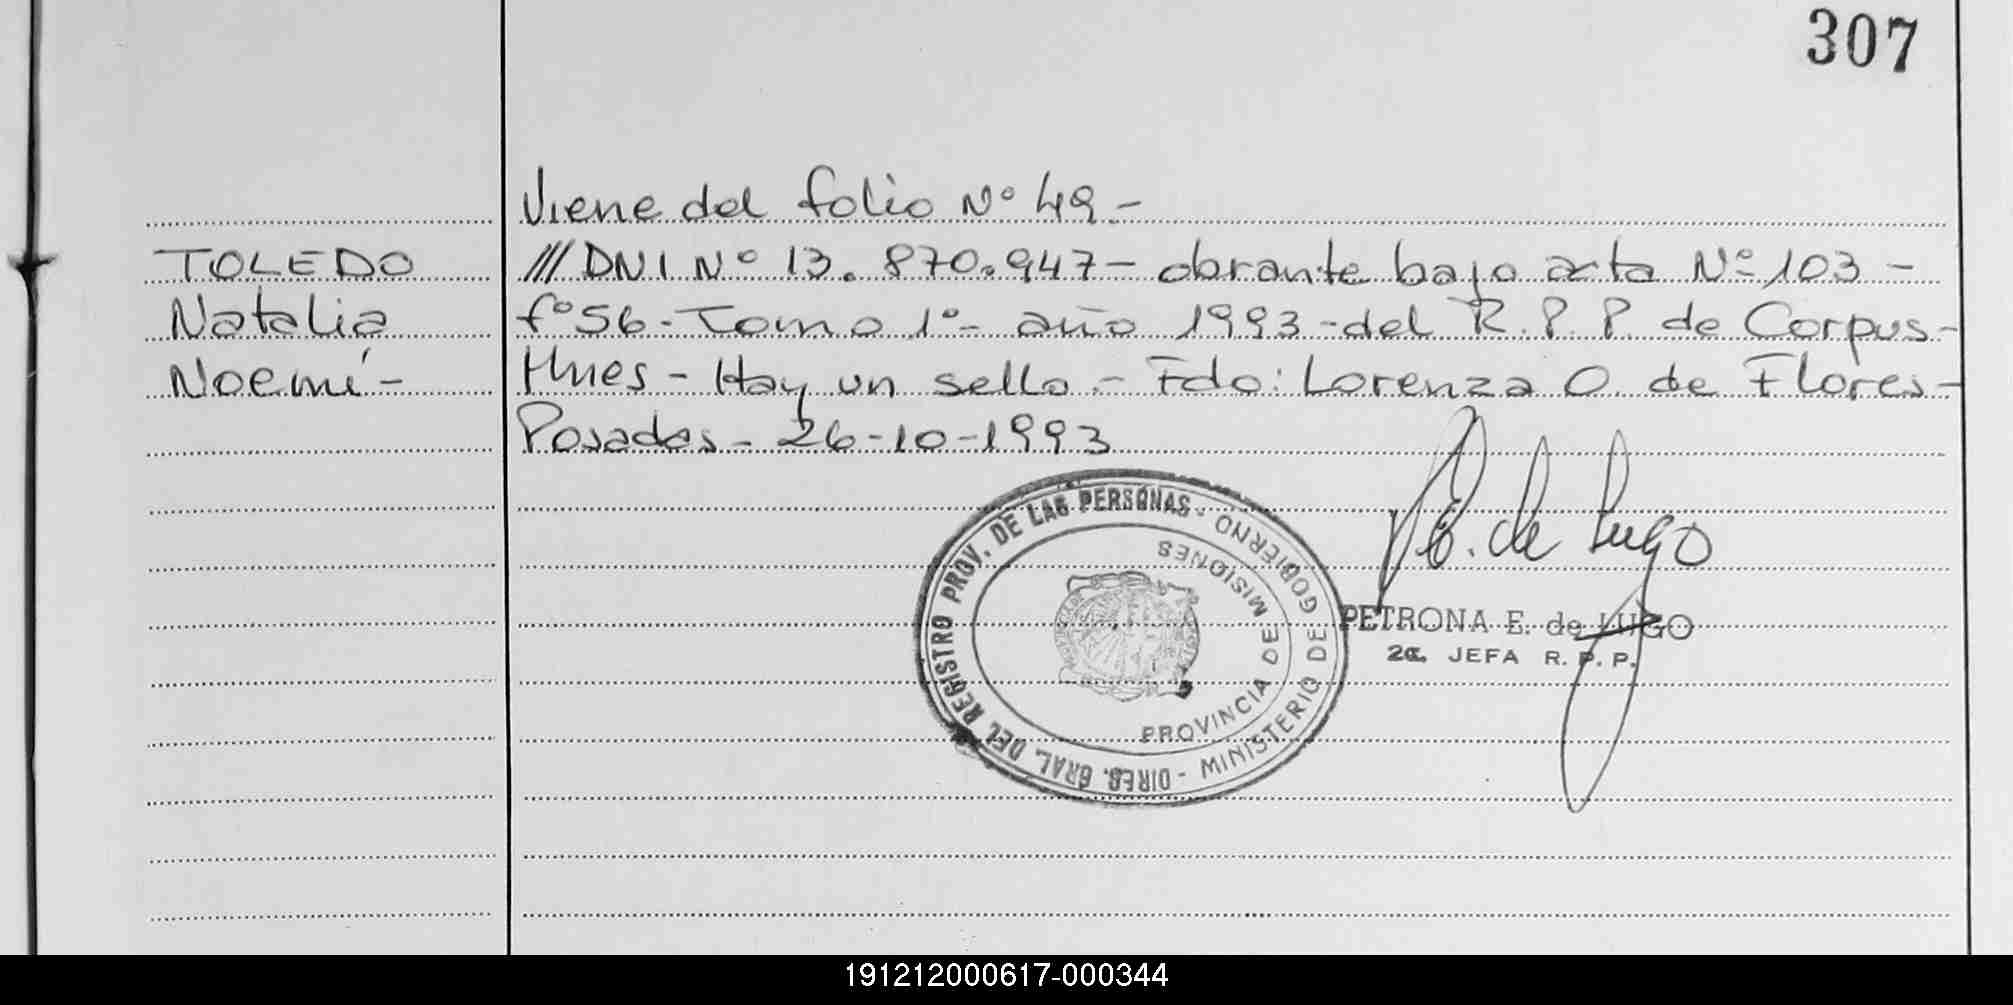 307
Viene del folio Nº 49-
TOLEDO
Natalia
Noemí-
/// DNI Nº 13.870.947- obrante bajo acta Nº 103-
fº 56- Tomo 1º- año 1993-del R.P.P. de Corpus-
Mnes- Hay un sello.- Fdo: Lorenza O. de Flores-
Posadas- 26-10-1993
DIREC. GRAL. DEL REGISTRO PROV. DE LAS PERSONAS - MINISTERIO DE GOBIERNO
PROVINCIA DE MISIONES
P E. de Lugo
PETRONA E. de LUGO
2a. JEFA R. P. P.
191212000617-000344